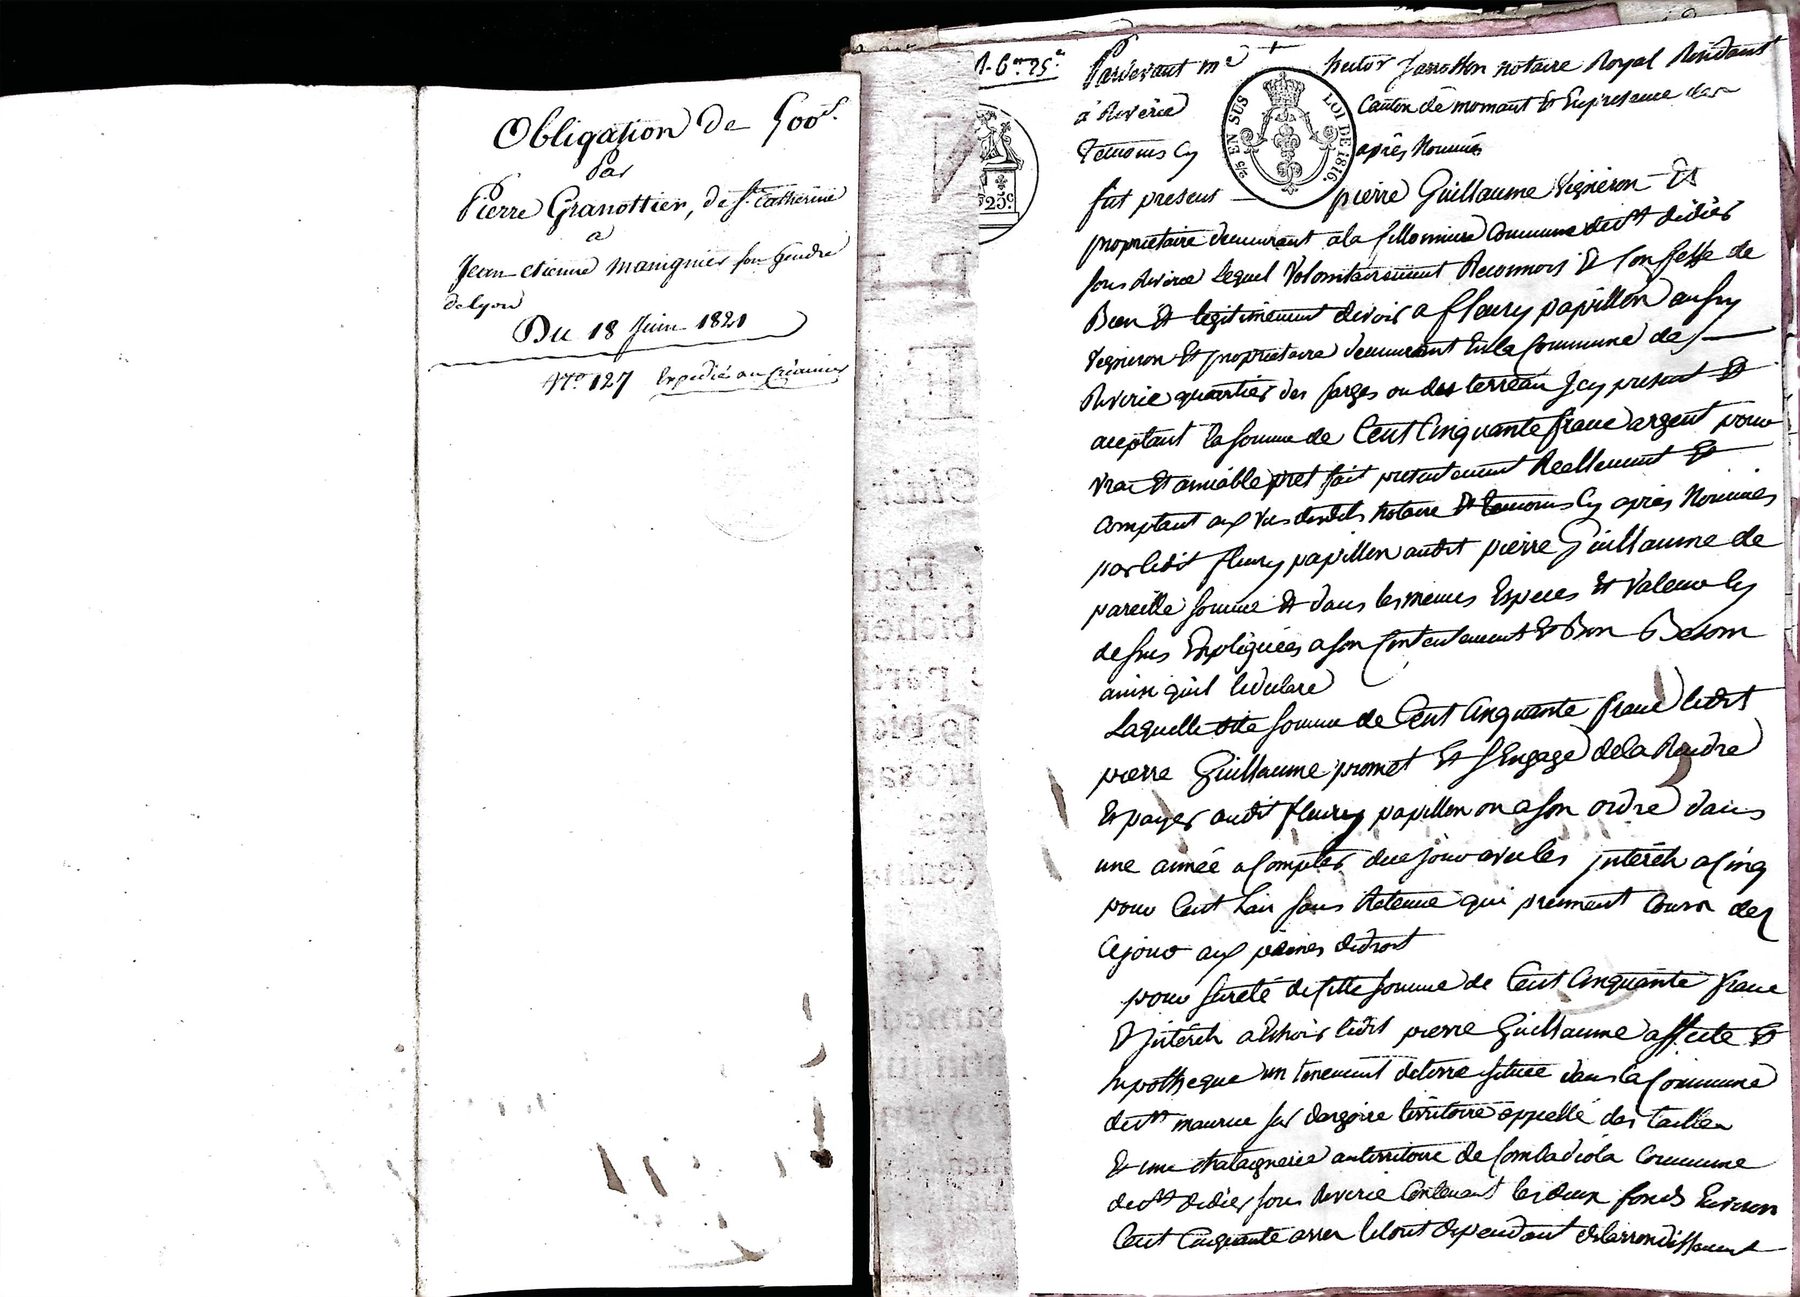 Obligation de 500f.
Par
Pierre Granottier, de Ste Catherine
a
Jean etienne manignier son Gendre
de lyon
Du 18 Juin 1821
No. 127 Expedié au Créancier
25c
2/5 EN SUS LOI DE 1816.
Pardevant me hector Jarrotton notaire Royal Residant
à Riverie Canton de mornant Et En presence des
Temoins Cy après Nommés
fut present pierre Guillaume Vigneron Et
proprietaire demeurant a la fillonniere Commune de st didier
sous Riverie Lequel Volontairement Reconnois Et Confesse de
Bien Et legitimement devoir a fleury papillon aussy
Vigneron Et proprietaire demeurant En la Commune de
Riverie quartier des farges ou des terreau Jcy present Et
aceptant la somme de Cent Cinquante franc argent pour
vrai Et amiable pret fait presentement Reellement Et
Comptant aux vus desdits Notaire Et temoins Cy après Nommés
par ledit fleury papillon audit pierre Guillaume de
pareille somme Et dans les memes Especes Et Valeur Cy
dessus Expliquées a son Contentement Et Bon Besoin
ainsi quil le declare
Laquelle dite somme de Cent Cinquante franc ledit
pierre Guillaume promet Et sEngage de la Rendre
Et payer audit fleury papillon ou a son ordre dans
une année a Compter de ce jour avec les jnterêts a Cinq
pour Cent Lan sans Retenue qui prennent Cours des
Cejour aux peines de droit
pour sureté de ditte somme de Cent Cinquante franc
Et jnterêts a Echoir ledit pierre Guillaume affecte Et
hypotheque un tenement de terre située dans la Commune
de st maurice sur dargoire territoire appellé des tailles
Et une chataignerie au territoire de Combadiola Commune
de st didier sous Riverie Contenant les deux fonds Environ
Cent Cinquante ares le tout dependant de larrondissement